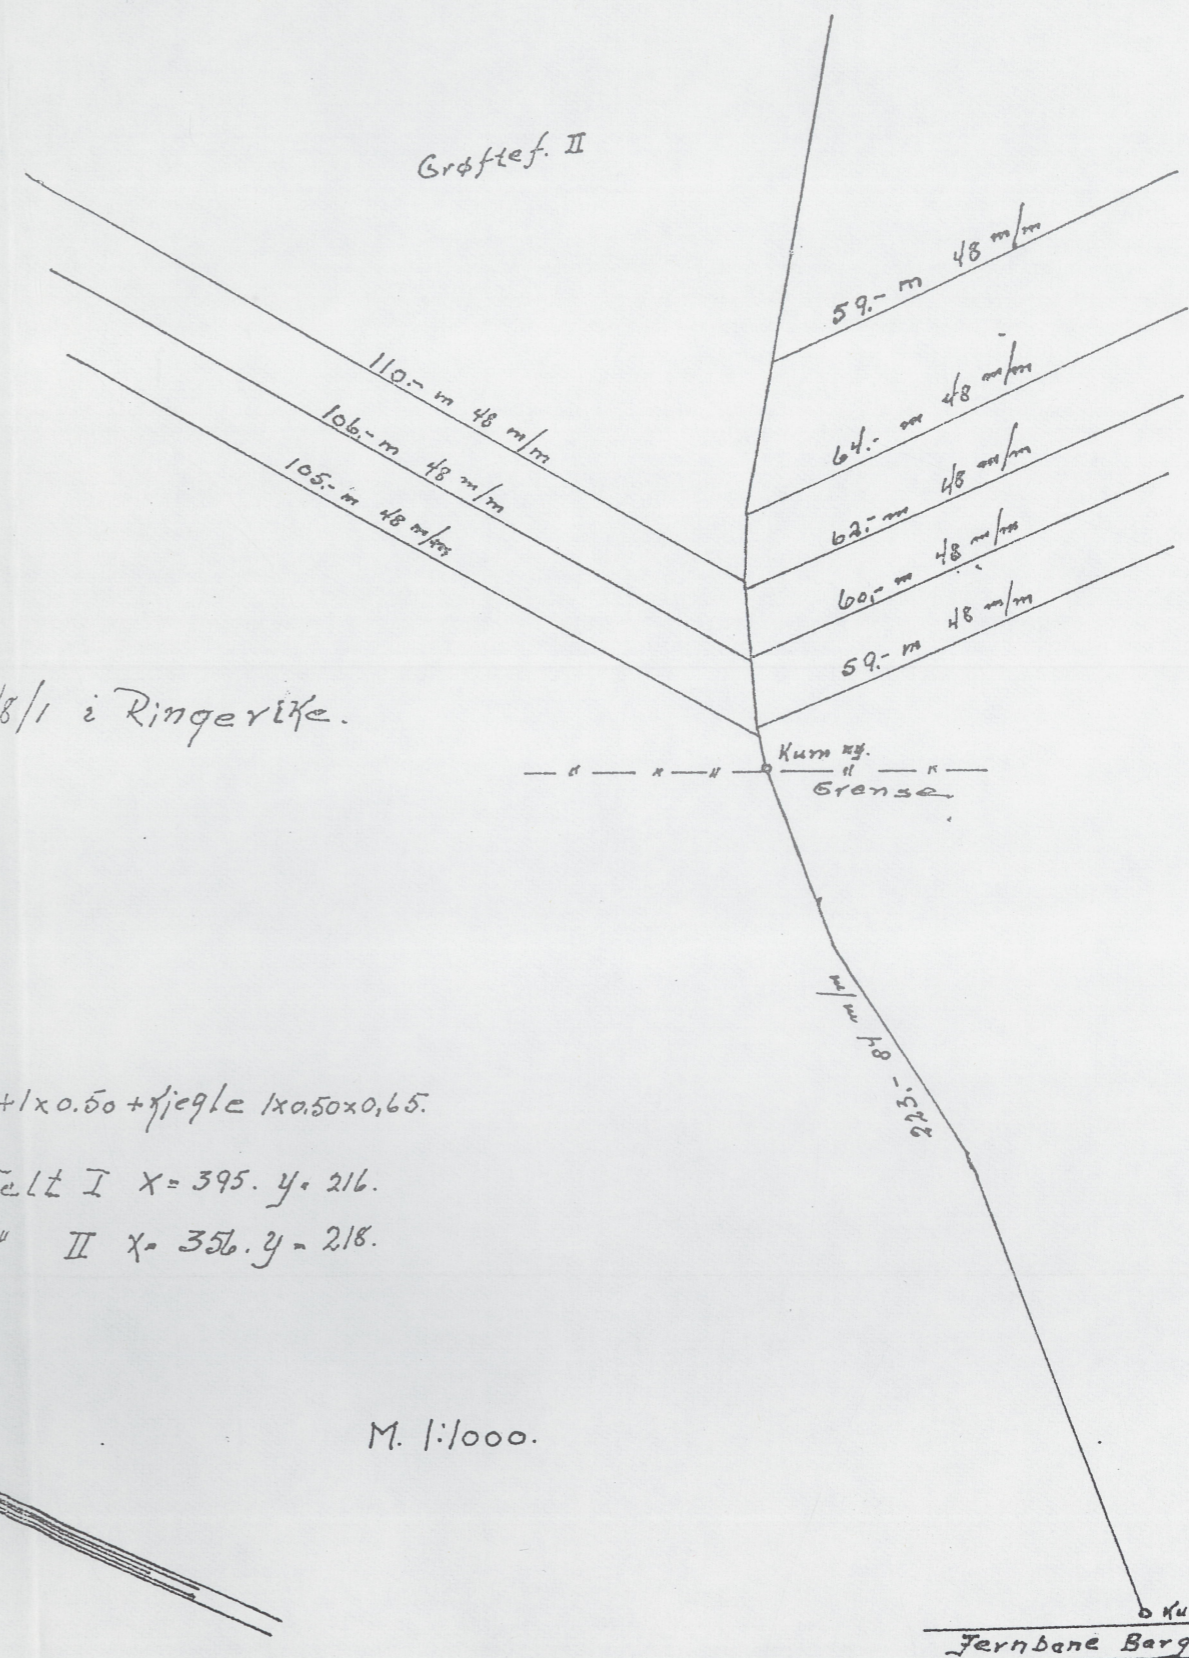 Grøftef. II
59.- m 48 m/m
110.- m 48 m/m
64.- m 48 m/m
106.- m 48 m/m
62.- m 48 m/m
105.- m 48 m/m
60,- m 48 m/m
59.- m 48 m/m
8/1 i Ringerike.
Kum
Grense
223.- 84 m/m
+1x0.50+kjegle 1x0.50x0,65.
Felt I X = 395. y = 216.
" II X = 356. y = 218.
M. 1:1000.
Ku
Jernbane Berg